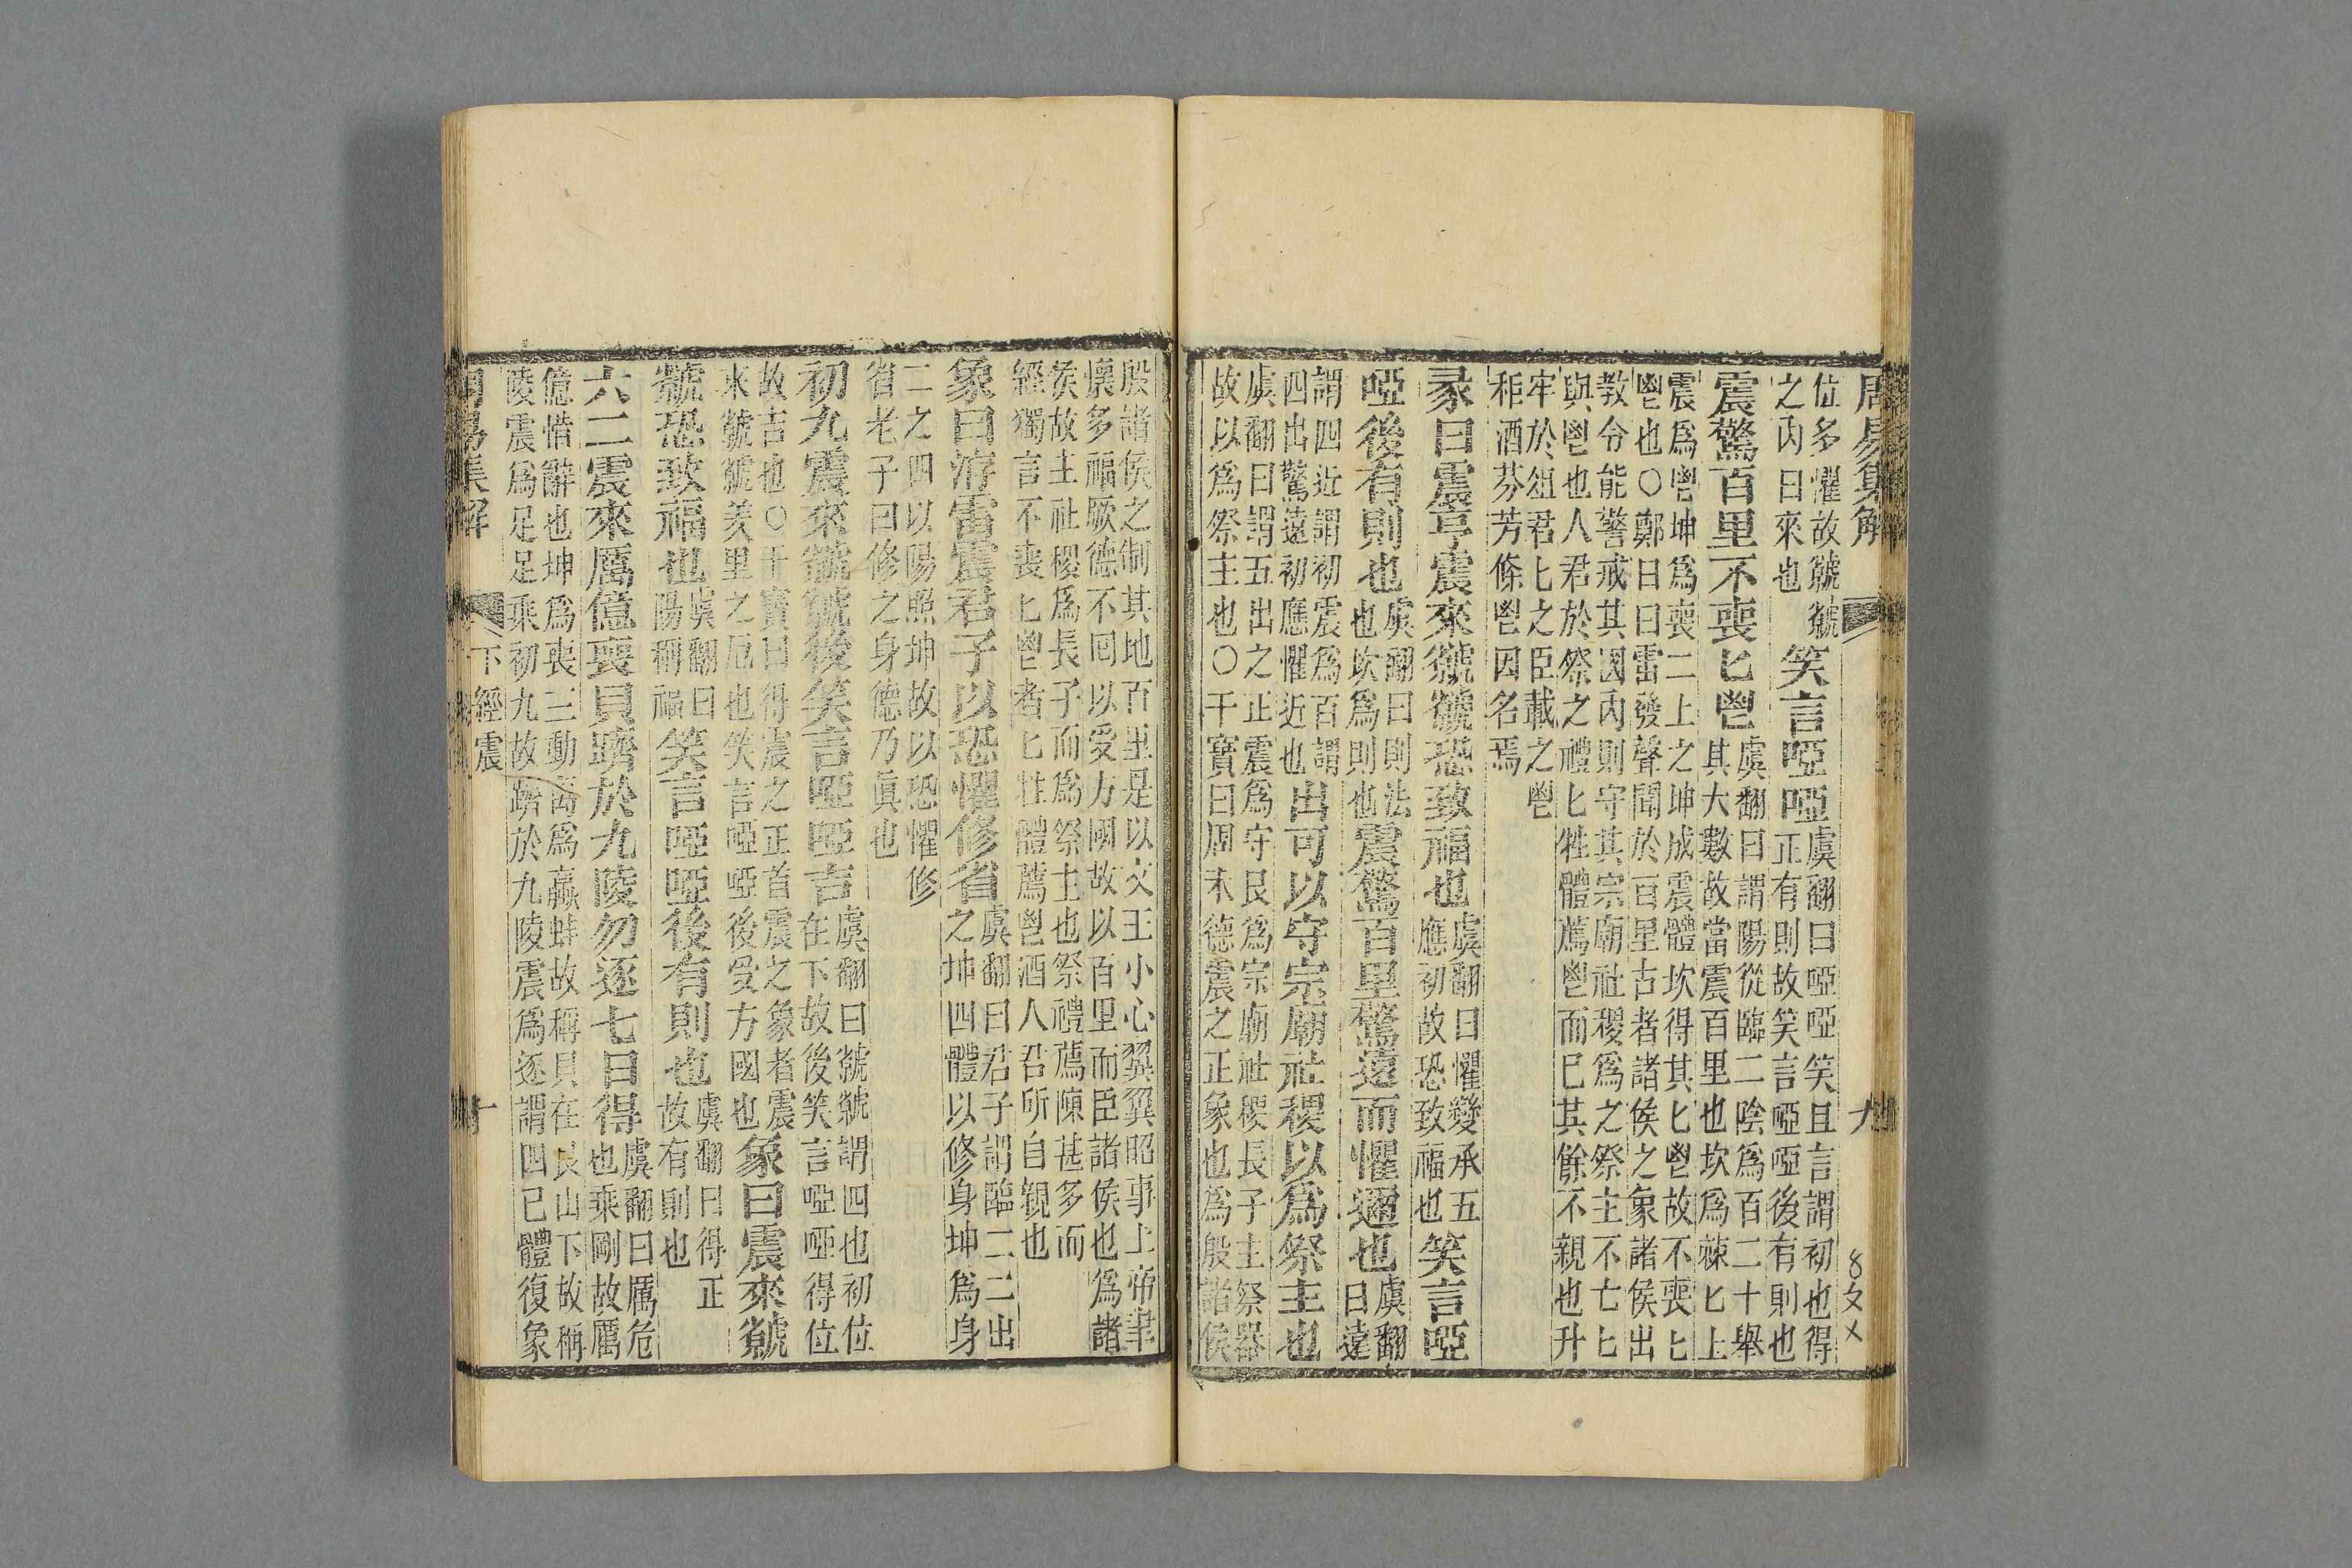 周易集解
九
位多懼故虩虩
之內曰來也
笑言啞啞
虞翻曰啞啞笑且言謂初也得
正有則故笑言啞啞後有則也
震驚百里不喪匕鬯
虞翻曰謂陽從臨二陰爲百二十舉
其大數故當震百里也坎爲棘匕上
震爲鬯坤爲喪二上之坤成震體坎得其匕鬯故不喪匕
鬯也〇鄭曰曰雷發聲聞於百里古者諸侯之象諸侯出
教令能警戒其國內則守其宗廟社稷爲之祭主不亡匕
與鬯也人君於祭之禮匕牲體薦鬯而已其餘不親也升
牢於俎君匕之臣載之鬯
秬酒芬芳條鬯因名焉
彖曰震亨震來虩虩恐致福也
虞翻曰懼變承五
應初故恐致福也
笑言啞
啞後有則也
虞翻曰則法
也坎爲則也
震驚百里驚遠而懼邇也
虞翻
曰遠
謂四近謂初震爲百謂
四出驚遠初應懼近也
出可以守宗廟社稷以爲祭主也
虞翻曰謂五出之正震爲守艮爲宗廟社稷長子主祭器
故以爲祭主也〇干寶曰周木德震之正象也爲殷諸侯
殷諸侯之制其地百里是以文王小心翼翼昭事上帝聿
懷多福厥德不回以受方國故以百里而臣諸侯也爲諸
侯故主社稷爲長子而爲祭主也祭禮薦陳甚多而
經獨言不喪匕鬯者匕牲體薦鬯酒人君所自親也
象曰洊雷震君子以恐懼修省
虞翻曰君子謂臨二二出
之坤四體以修身坤爲身
二之四以陽照坤故以恐懼修
省老子曰修之身德乃眞也
初九震來虩虩後笑言啞啞吉
虞翻曰虩虩謂四也初位
在下故後笑言啞啞得位
故吉也〇干寶曰得震之正首震之象者震
來虩虩羑里之厄也笑言啞啞後受方國也
象曰震來虩
虩恐致福也
虞翻曰
陽稱福
笑言啞啞後有則也
虞翻曰得正
故有則也
六二震來厲億喪貝躋於九陵勿逐七日得
虞翻曰厲危
也乘剛故厲
億惜辭也坤爲喪三動离爲蠃蚌故稱貝在艮山下故稱
陵震爲足足乘初九故躋於九陵震爲逐謂四已體復象
周易集解
下經震
十